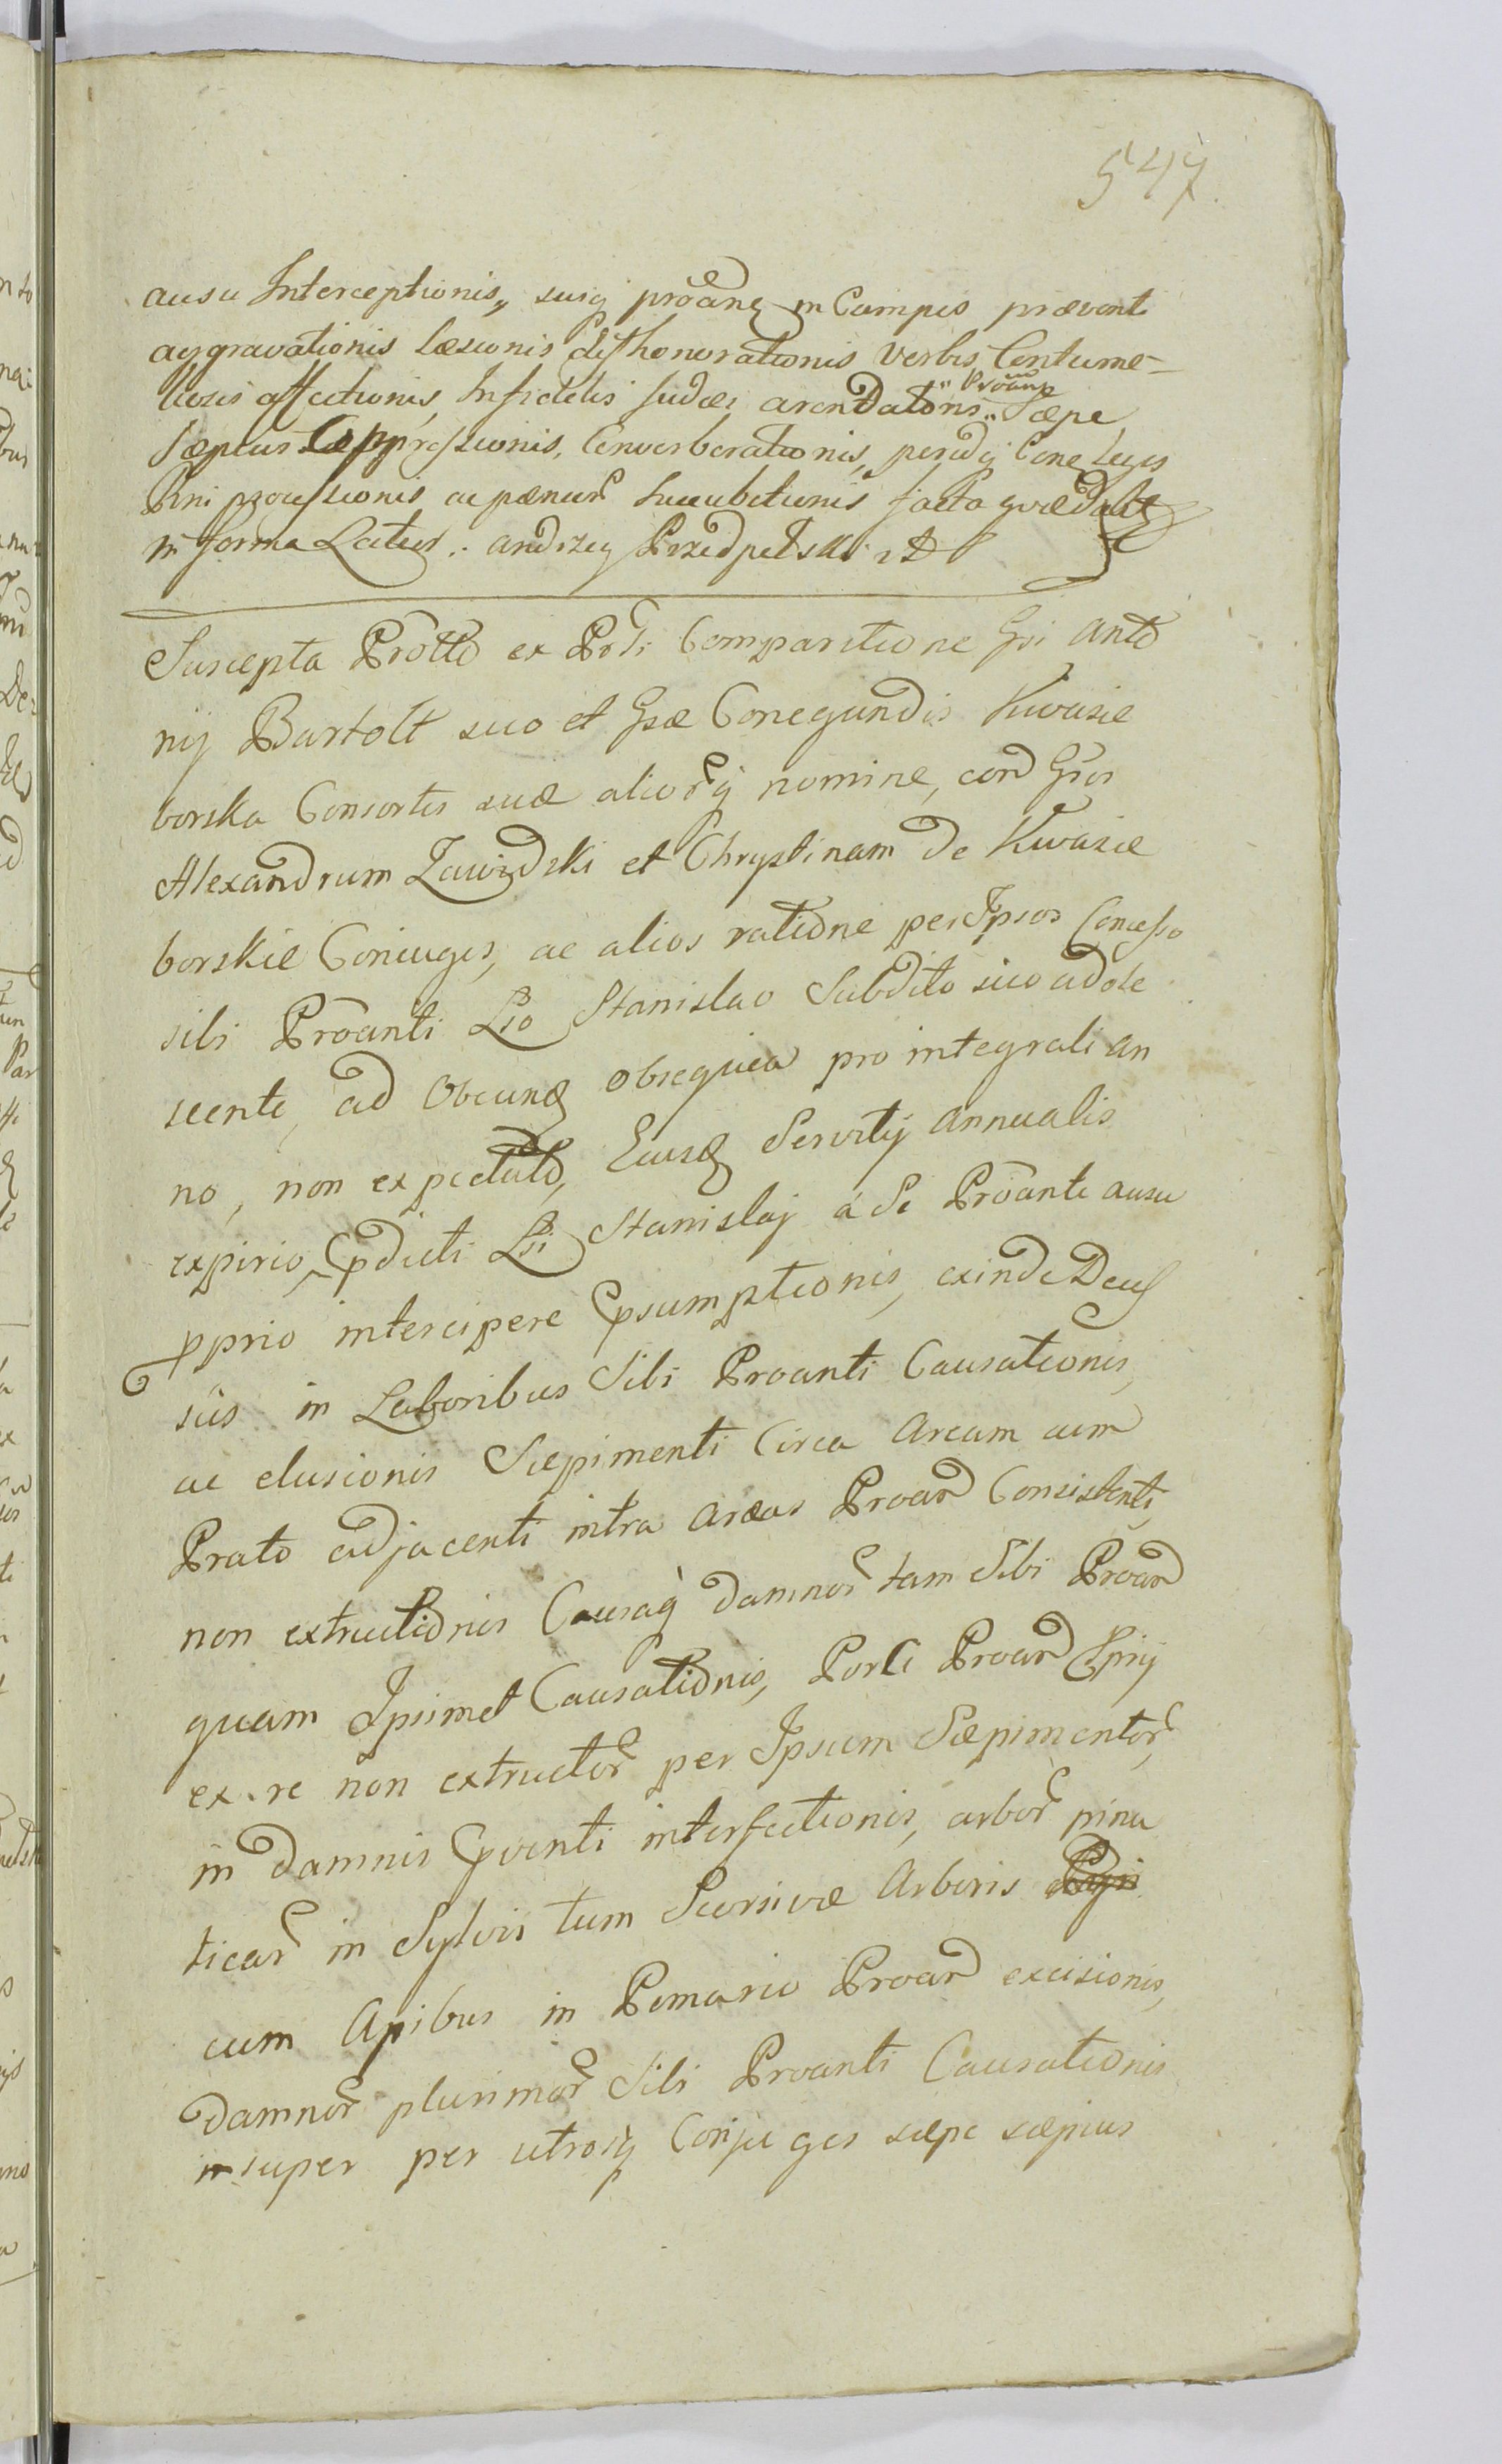 547.
ausu Interceptionis, suiq proãne in Campis prævent
aggravationis læsionis dishonorationis verbis Contume-
liosis affectionis, Infidelis Judæi arendatoris " Proãnt " Sæpe
sæpius Oppressionis, Converberationis,
in forma Latius. Andrzey Przedpełski
Suscepta Protto ex Prti Comparitione Gsi Anto
nij Bartolt suo et Gsæ Conegundis Kwasie
borska Consortis suæ aliorq nomine, con Gsos
Alexandrum Zawidzki et Chrystinam de Kwasie
borskie Coniuges, ac alios ratione per Ipsos Concesso
sibi Proanti Lso Stanislao Subdito suo adole
scente, ad obeund obsequia pro integrali an
no, non expectato, Eiusd Servitij annualis
expirio, pdicti Lsi Stanislaj á Se Proante ausu
pprio intercipere psumptionis, exinde Decess
sûs in Laboribus Sibi Proanti Causationis,
ac elusionis Sæpimenti Circa Aream cum
Prato adjacenti intra areas Proan Consistenti,
non extructionis Causaq damnor tam Sibi Proan
quam Ipsimet Causationis, Porci Proan pprij
ex re non extructor per Ipsum Sæpimentor,
in damnis pventi interfectionis, arbor pina
ticar in Sylvis tum Scorsivæ Arboris
cum Apibus in Pomario Proan excisionis,
damnor plurimor Sibi Proanti Causationis
insuper per utrosq Conjuges sæpe sæpius